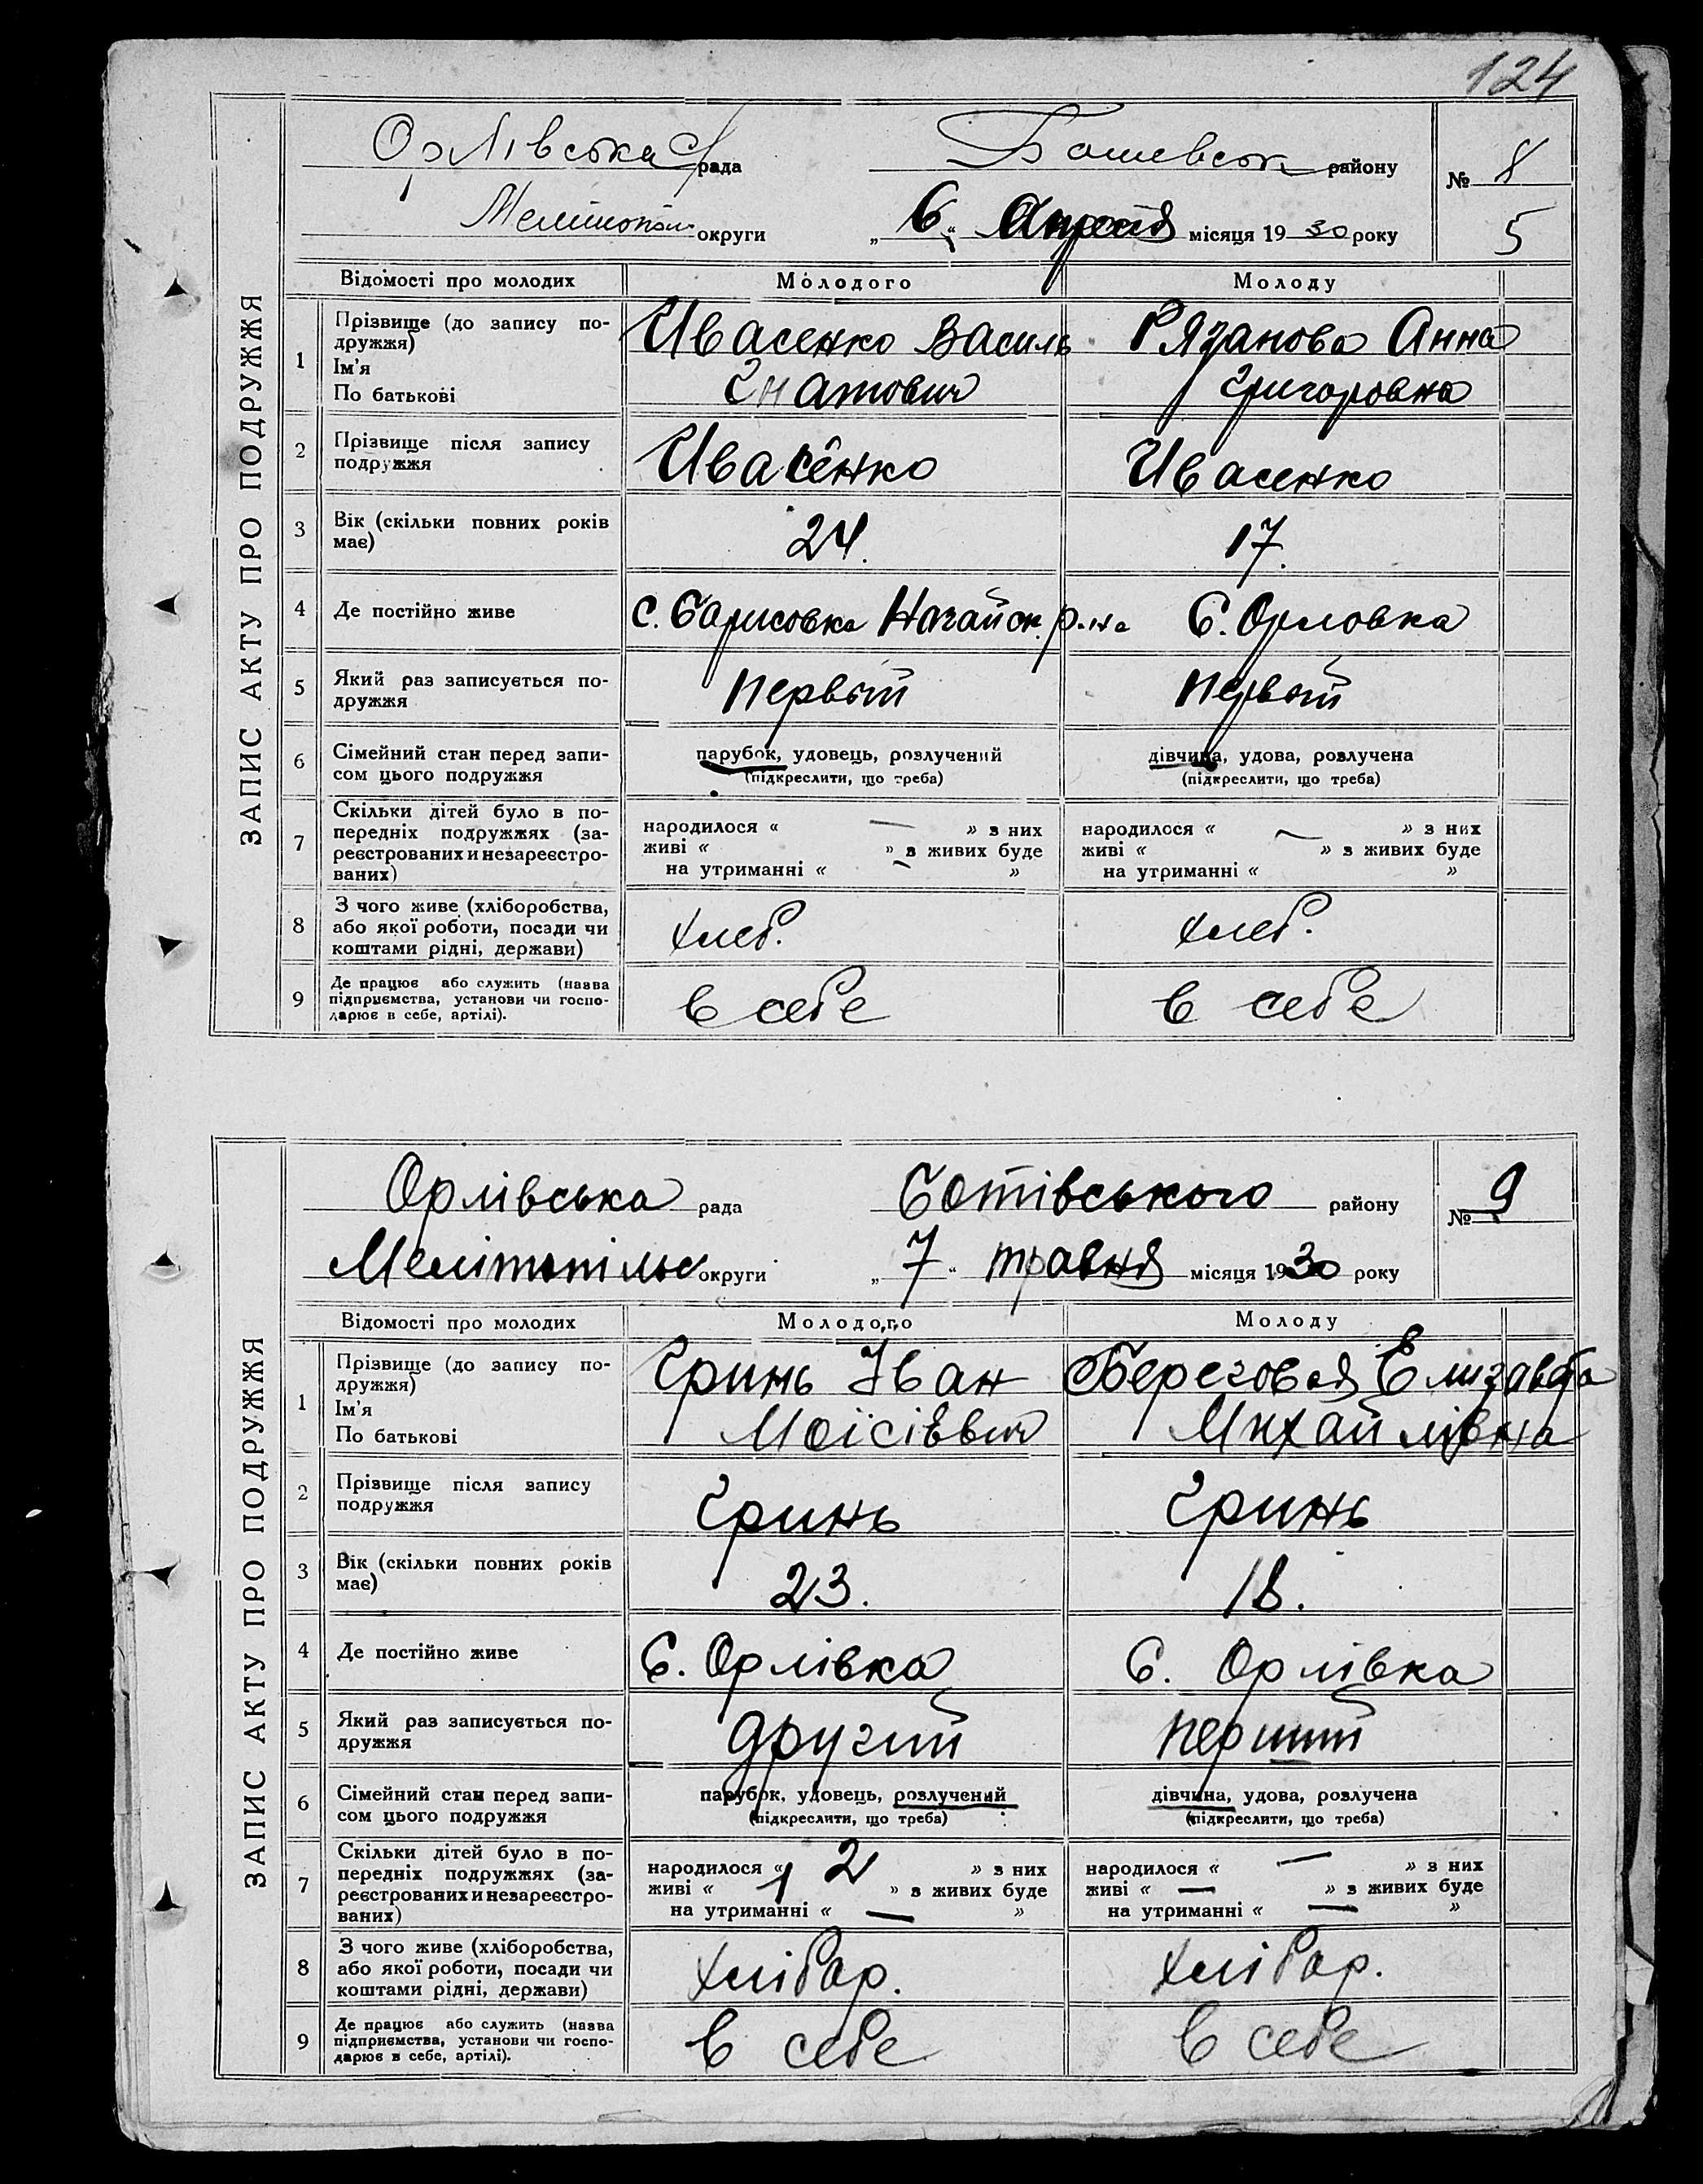 124
Орлівська с/рада Ботевськ району № 8
Мелітопол. округи „ 6 “ Апреля місяця 19 30 року 5
ЗАПИС АКТУ ПРО ПОДРУЖЖЯ
Відомості про молодих Молодого Молоду
1 Прізвище (до запису по-
дружжя)
Ім'я
По батькові
Ивасенко Василь
Игнатович
Рязанова Анна
Григоровна
2 Прізвище після запису
подружжя
Ивасенко Ивасенко
3 Вік (скільки повних років
має)
24. 17.
4 Де постійно живе с. Борисовка Ногайск. р-на С. Орловка
5 Який раз записується по-
дружжя
первый первый
6 Сімейний стан перед запи-
сом цього подружжя
парубок, удовець, розлучений
(підкреслити, що треба)
дівчина, удова, розлучена
(підкреслити, що треба)
7 Скільки дітей було в по-
передніх подружжях (за-
реєстрованих и незареєстро-
ваних)
народилося « — » з них
живі « » з живих буде
на утриманні « — »
народилося « — » з них
живі « » з живих буде
на утриманні « »
8 З чого живе (хліборобства,
або якої роботи, посади чи
коштами рідні, держави)
хлеб. хлеб.
9 Де працює або служить (назва
підприємства, установи чи госпо-
дарює в себе, артілі).
в себе в себе
Орлівська рада Ботівського району № 9
Мелітопільс округи „ 7 “ травня місяця 1930 року
ЗАПИС АКТУ ПРО ПОДРУЖЖЯ
Відомості про молодих Молодого Молоду
1 Прізвище (до запису по-
дружжя)
Ім'я
По батькові
Гринь Іван
Моісієвич
Береговая Елизавета
Михайлівна
2 Прізвище після запису
подружжя
Гринь Гринь
3 Вік (скільки повних років
має)
23. 18.
4 Де постійно живе С. Орлівка С. Орлівка
5 Який раз записується по-
дружжя
другий перший
6 Сімейний стан перед запи-
сом цього подружжя
парубок, удовець, розлучений
(підкреслити, що треба)
дівчина, удова, розлучена
(підкреслити, що треба)
7 Скільки дітей було в по-
передніх подружжях (за-
реєстрованих и незареєстро-
ваних)
народилося « 2 » з них
живі « 1 » з живих буде
на утриманні « — »
народилося « — » з них
живі « — » з живих буде
на утриманні « — »
8 З чого живе (хліборобства,
або якої роботи, посади чи
коштами рідні, держави)
хлібор. хлібор.
9 Де працює або служить (назва
підприємства, установи чи госпо-
дарює в себе, артілі).
в себе в себе